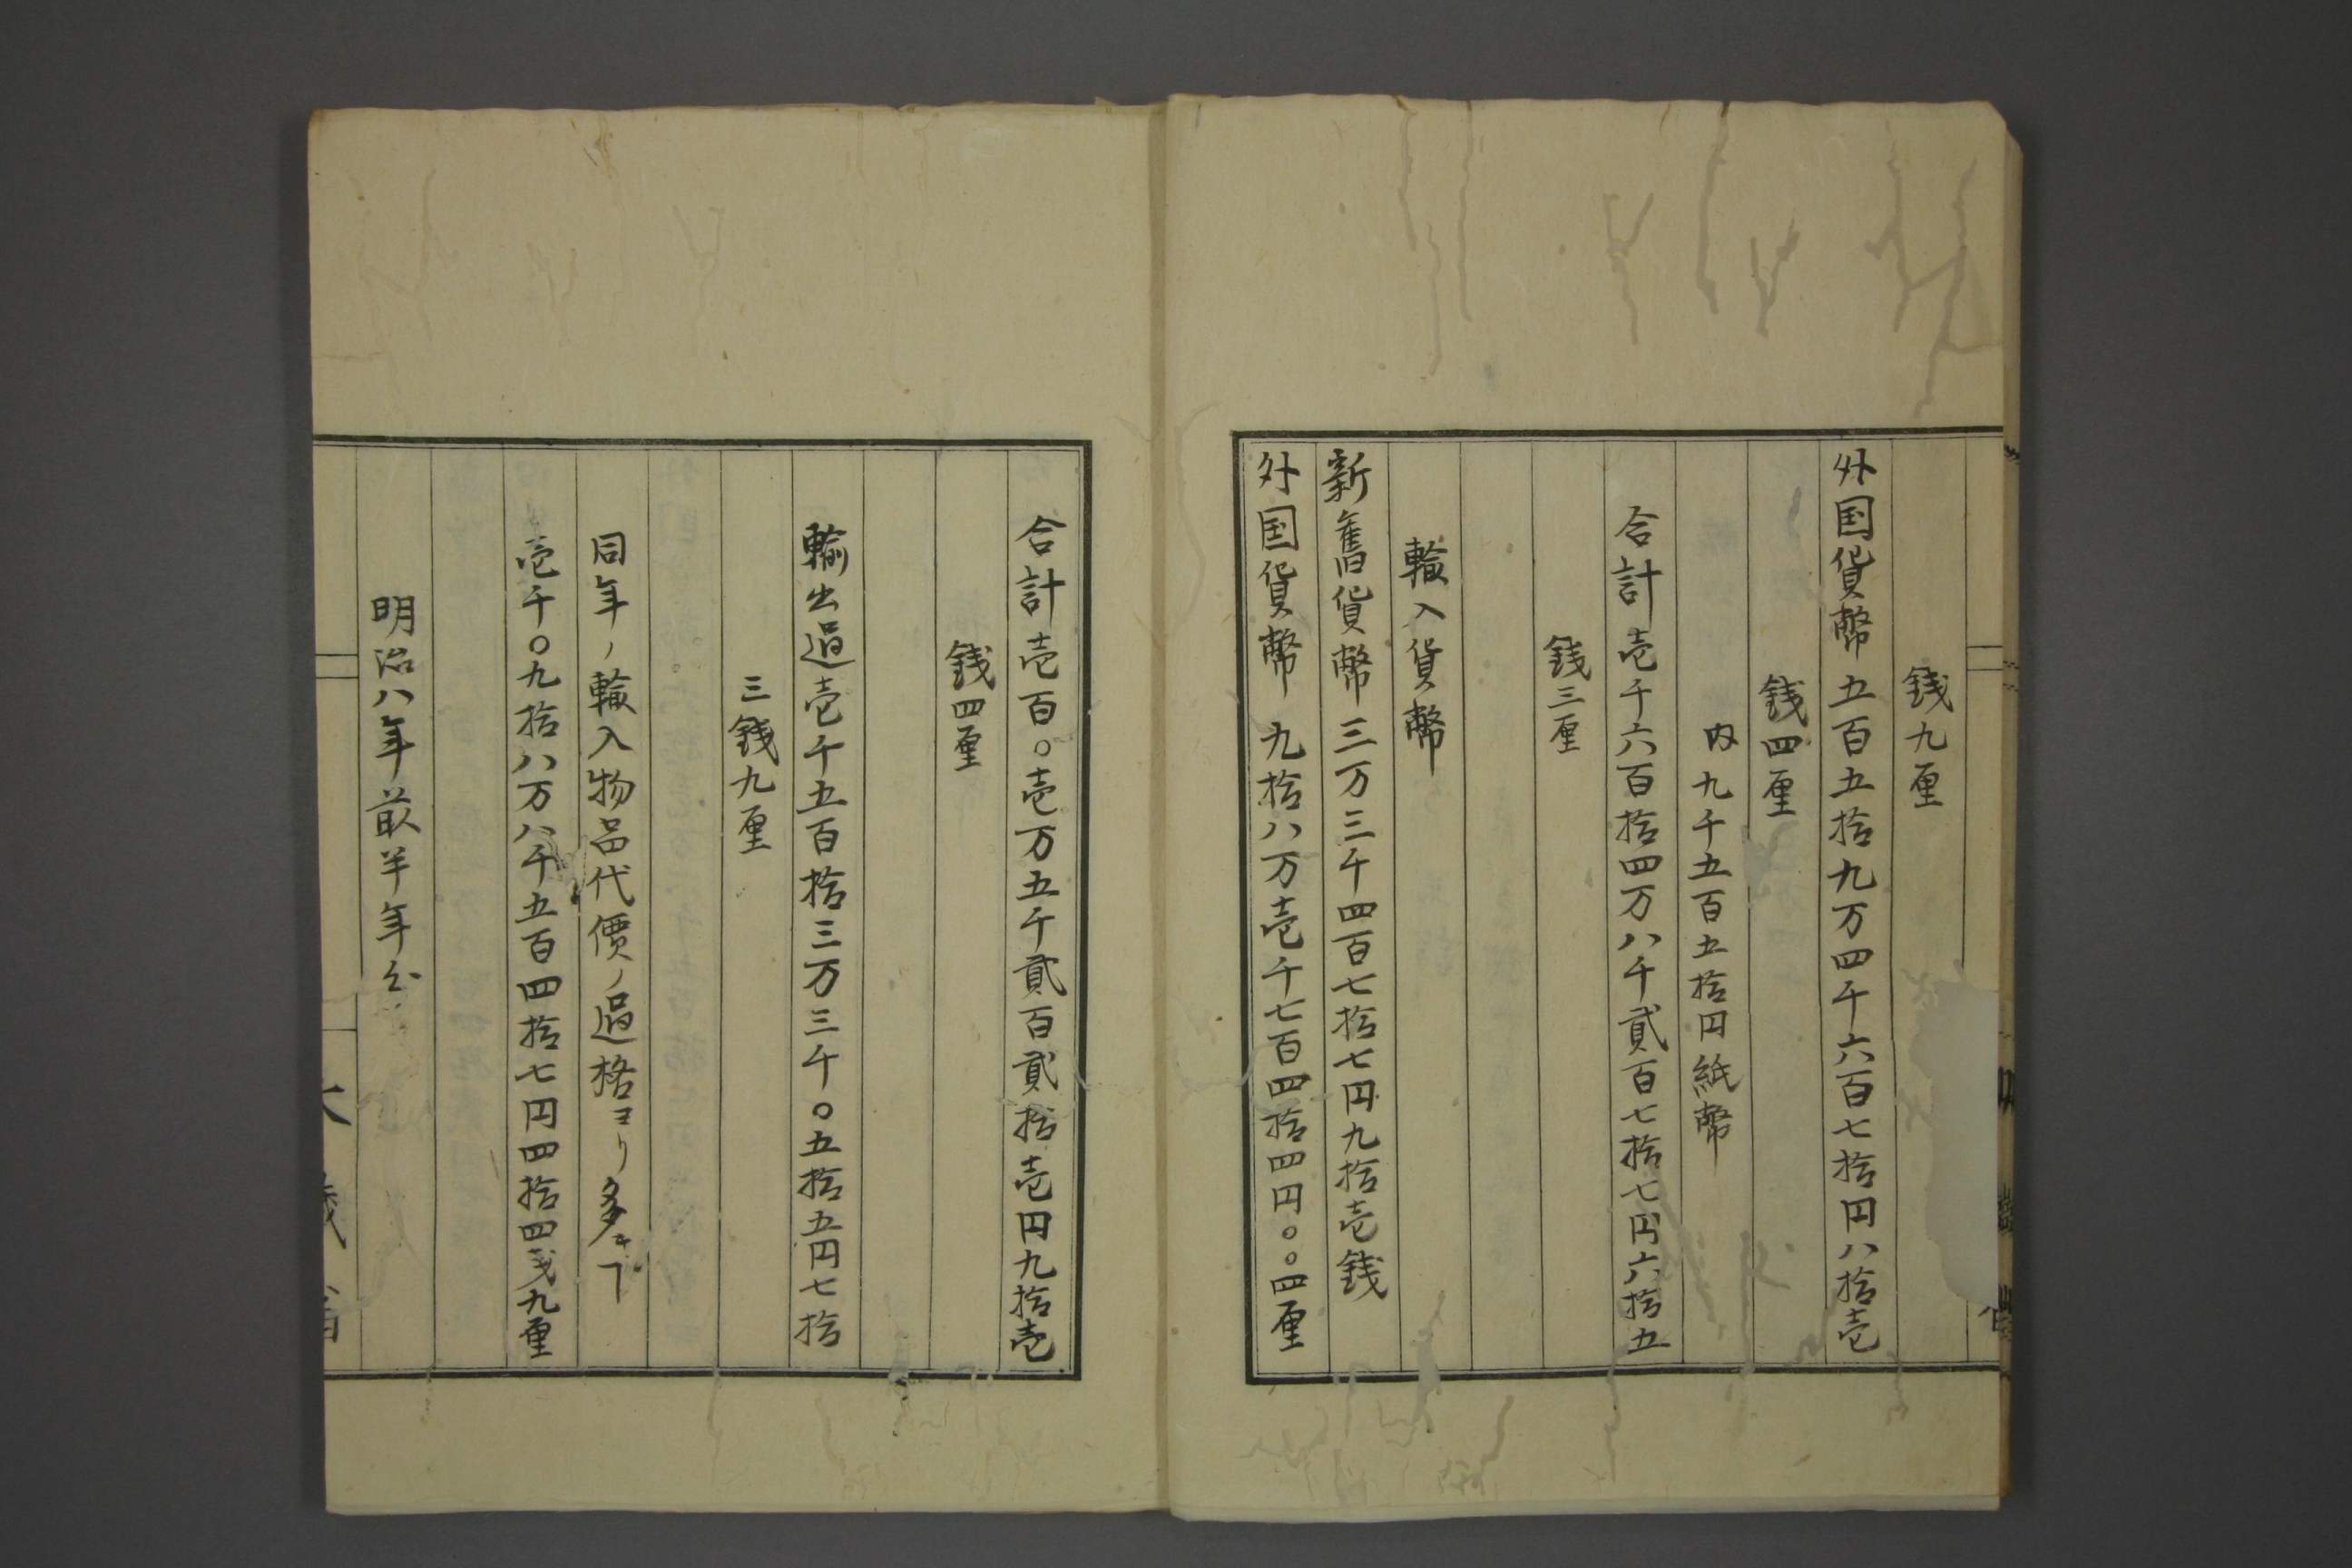 銭九厘
外国貨幣五百五拾九万四千六百七拾円八拾壱
銭四厘
内九千五百五拾円紙幣
合計壱千六百拾四万八千貳百七拾七円六拾五
銭三厘
輸入貨幣
新舊貨幣三万三千四百七拾七円九拾壱銭
外国貨幣九拾八万壱千七百四拾四円〇〇四厘
合計壱百〇壱万五千貳百貳拾壱円九拾壱
銭四厘
輸出過壱千五百拾三万三千〇五拾五円七拾
三銭九厘
同年ノ輸入物品代價ノ過格ヨリ多キヿ
壱千〇九拾八万八千五百四拾七円四拾四戋九厘
明治八年最半年分
大蔵省